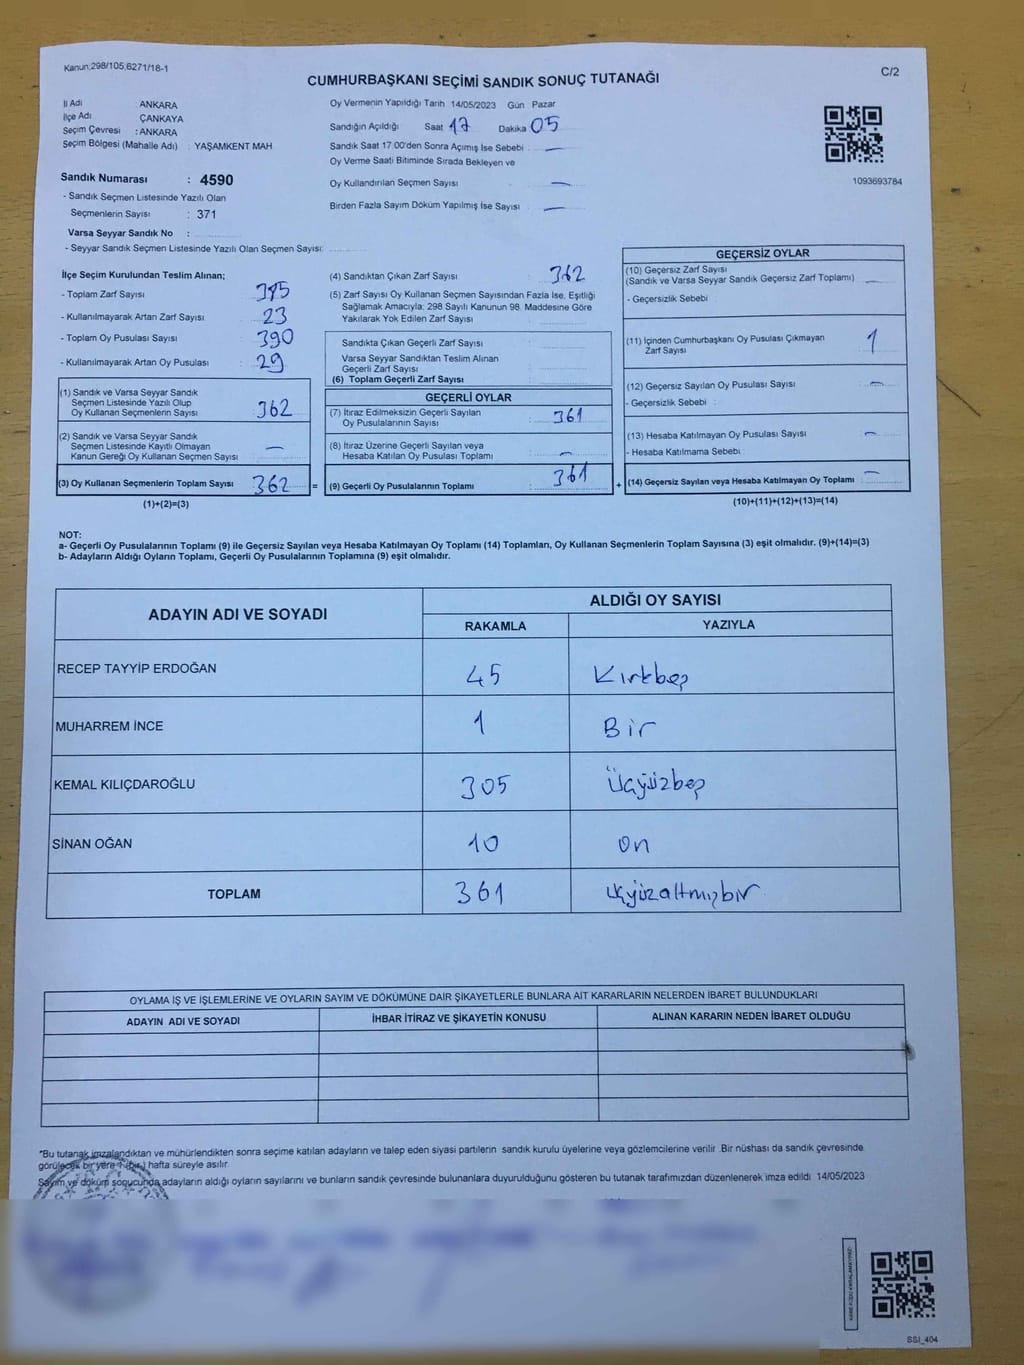 Kanun:298/105,6271/18-1
C/2
CUMHURBAŞKANI SEÇİMİ SANDIK SONUÇ TUTANAĞI
İl Adı : ANKARA
İlçe Adı : ÇANKAYA
Seçim Çevresi : ANKARA
Seçim Bölgesi (Mahalle Adı) : YAŞAMKENT MAH
Oy Vermenin Yapıldığı Tarih 14/05/2023 Gün : Pazar
Sandığın Açıldığı Saat 17 Dakika 05
Sandık Saat 17.00'den Sonra Açımış İse Sebebi : —
Oy Verme Saati Bitiminde Sırada Bekleyen ve
Oy Kullandırılan Seçmen Sayısı : —
Birden Fazla Sayım Döküm Yapılmış İse Sayısı : —
1093693784
Sandık Numarası : 4590
- Sandık Seçmen Listesinde Yazılı Olan
Seçmenlerin Sayısı : 371
Varsa Seyyar Sandık No :
- Seyyar Sandık Seçmen Listesinde Yazılı Olan Seçmen Sayısı:
İlçe Seçim Kurulundan Teslim Alınan;
- Toplam Zarf Sayısı : 385
- Kullanılmayarak Artan Zarf Sayısı : 23
- Toplam Oy Pusulası Sayısı : 390
- Kullanılmayarak Artan Oy Pusulası : 29
(1) Sandık ve Varsa Seyyar Sandık
Seçmen Listesinde Yazılı Olup
Oy Kullanan Seçmenlerin Sayısı : 362
(2) Sandık ve Varsa Seyyar Sandık
Seçmen Listesinde Kayıtlı Olmayan
Kanun Gereği Oy Kullanan Seçmen Sayısı : —
(3) Oy Kullanan Seçmenlerin Toplam Sayısı : 362 =
(1)+(2)=(3)
(4) Sandıktan Çıkan Zarf Sayısı : 362
(5) Zarf Sayısı Oy Kullanan Seçmen Sayısından Fazla İse, Eşitliği
Sağlamak Amacıyla; 298 Sayılı Kanunun 98. Maddesine Göre
Yakılarak Yok Edilen Zarf Sayısı :
Sandıkta Çıkan Geçerli Zarf Sayısı :
Varsa Seyyar Sandıktan Teslim Alınan
Geçerli Zarf Sayısı :
(6) Toplam Geçerli Zarf Sayısı :
GEÇERLİ OYLAR
(7) İtiraz Edilmeksizin Geçerli Sayılan
Oy Pusulalarının Sayısı : 361
(8) İtiraz Üzerine Geçerli Sayılan veya
Hesaba Katılan Oy Pusulası Toplamı : —
(9) Geçerli Oy Pusulalarının Toplamı : 361 +
GEÇERSİZ OYLAR
(10) Geçersiz Zarf Sayısı
(Sandık ve Varsa Seyyar Sandık Geçersiz Zarf Toplamı) : —
- Geçersizlik Sebebi :
(11) İçinden Cumhurbaşkanı Oy Pusulası Çıkmayan
Zarf Sayısı : 1
(12) Geçersiz Sayılan Oy Pusulası Sayısı : —
- Geçersizlik Sebebi :
(13) Hesaba Katılmayan Oy Pusulası Sayısı : —
- Hesaba Katılmama Sebebi :
(14) Geçersiz Sayılan veya Hesaba Katılmayan Oy Toplamı : —
(10)+(11)+(12)+(13)=(14)
NOT:
a- Geçerli Oy Pusulalarının Toplamı (9) ile Geçersiz Sayılan veya Hesaba Katılmayan Oy Toplamı (14) Toplamları, Oy Kullanan Seçmenlerin Toplam Sayısına (3) eşit olmalıdır. (9)+(14)=(3)
b- Adayların Aldığı Oyların Toplamı, Geçerli Oy Pusulalarının Toplamına (9) eşit olmalıdır.
ADAYIN ADI VE SOYADI
ALDIĞI OY SAYISI
RAKAMLA YAZIYLA
RECEP TAYYİP ERDOĞAN 45 Kırkbeş
MUHARREM İNCE 1 Bir
KEMAL KILIÇDAROĞLU 305 Üçyüzbeş
SİNAN OĞAN 10 On
TOPLAM 361 Üçyüzaltmışbir
OYLAMA İŞ VE İŞLEMLERİNE VE OYLARIN SAYIM VE DÖKÜMÜNE DAİR ŞİKAYETLERLE BUNLARA AİT KARARLARIN NELERDEN İBARET BULUNDUKLARI
ADAYIN ADI VE SOYADI İHBAR İTİRAZ VE ŞİKAYETİN KONUSU ALINAN KARARIN NEDEN İBARET OLDUĞU
*Bu tutanak imzalandıktan ve mühürlendikten sonra seçime katılan adayların ve talep eden siyasi partilerin sandık kurulu üyelerine veya gözlemcilerine verilir. Bir nüshası da sandık çevresinde
görülecek bir yere 1 (bir) hafta süreyle asılır.
Sayım ve döküm sonucunda adayların aldığı oyların sayılarını ve bunların sandık çevresinde bulunanlara duyurulduğunu gösteren bu tutanak tarafımızdan düzenlenerek imza edildi 14/05/2023
SSI_404